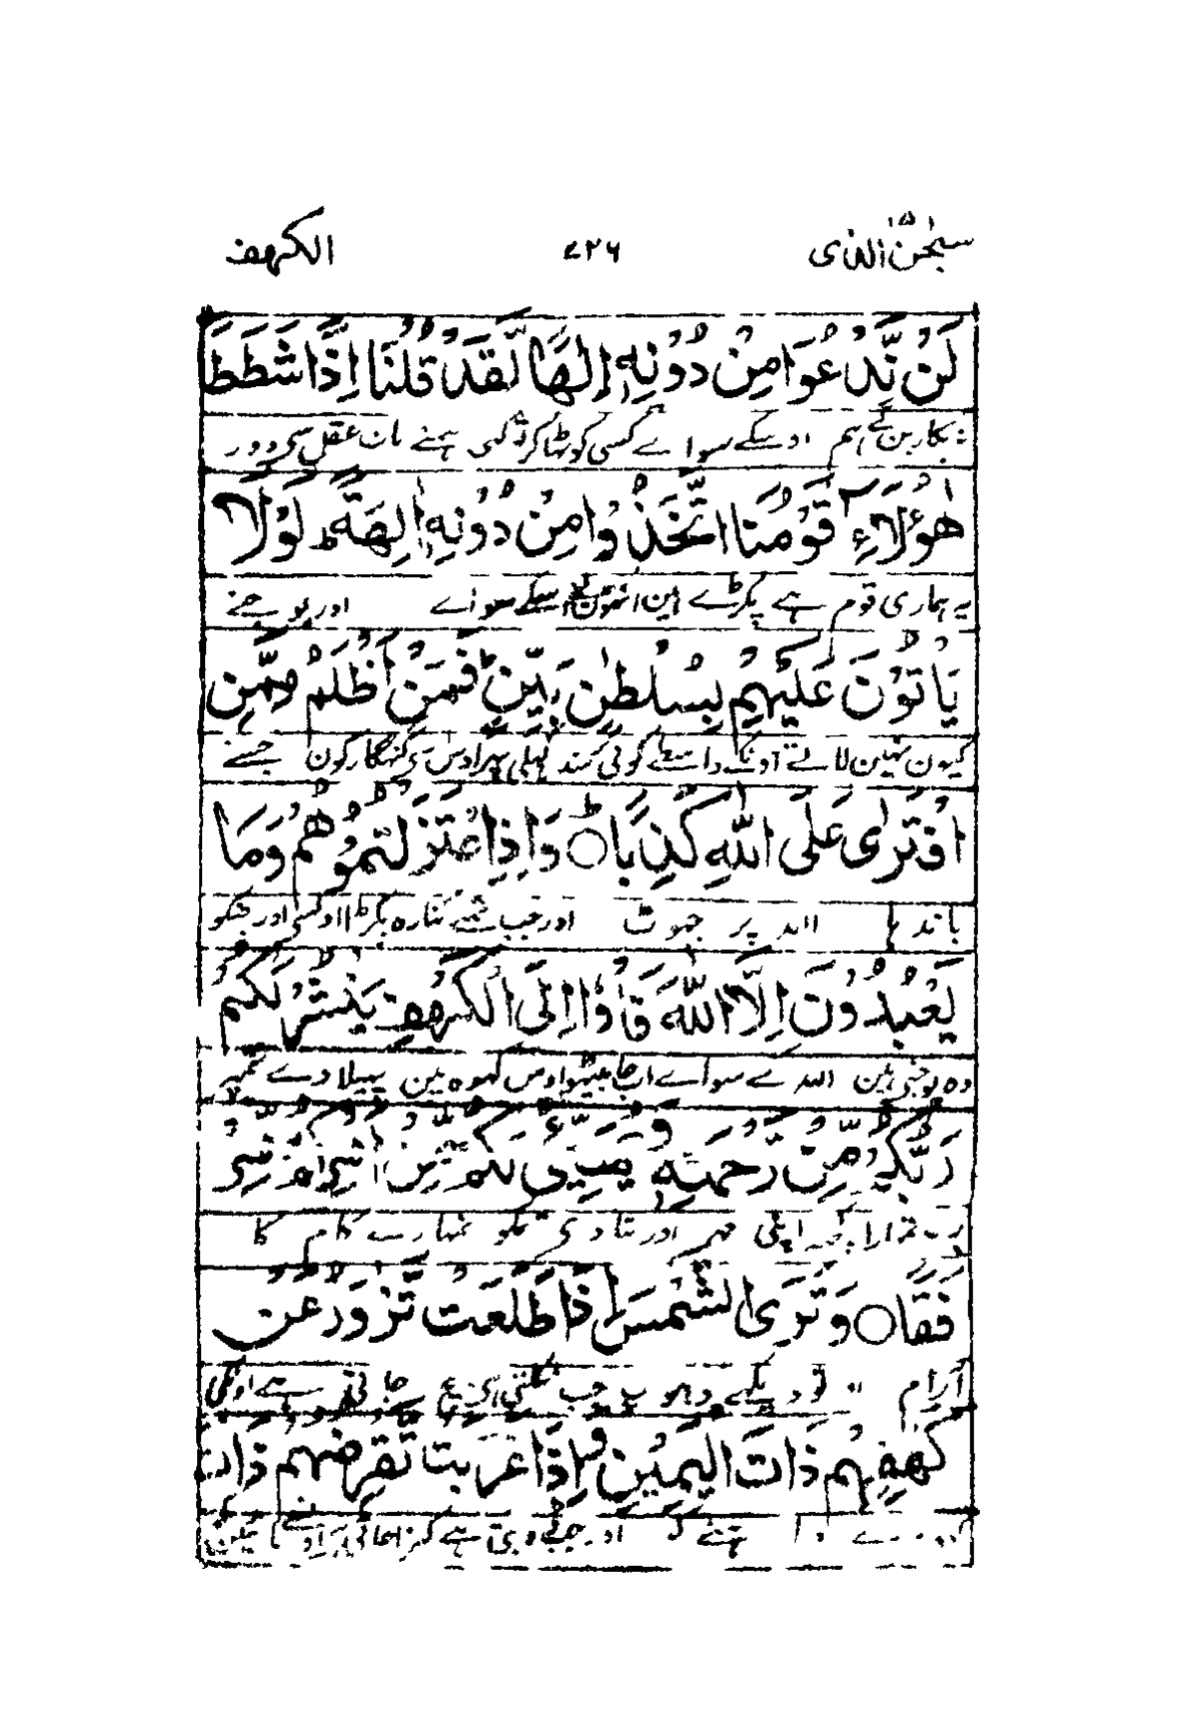 سبحٰن الذی ۱۵ ۷۲۶ الکہف
لَنْ نَّدْعُوَا مِنْ دُوْنِهٖ اِلٰهًا لَّقَدْ قُلْنَا اِذًا شَطَطًا
نہ پکارین گے ہم اوسکے سواے کسی کو ٹھاکر تو کہی ہمنے بات عقل سی دور
هٰۤؤُلَآءِ قَوْمُنَا اتَّخَذُوْا مِنْ دُوْنِهٖۤ اٰلِهَةً ؕ لَوْلَا
یہ ہماری قوم ہے پکڑے ہین انہون نے اسکے سواے اور پوجنے
يَاْتُوْنَ عَلَيْهِمْ بِسُلْطٰنٍۭ بَيِّنٍ ؕ فَمَنْ اَظْلَمُ مِمَّنِ
کیون نہین لاتے اونکے واسطے کوئی سند کہلی پہر اوس سے گنہگار کون جسنے
افْتَرٰى عَلَى اللّٰهِ كَذِبًا ؕ○ وَاِذِ اعْتَزَلْتُمُوْهُمْ وَمَا
باندہا اللہ پر جہوٹ اور جب تمنے کنارہ پکڑا اونسے اور جنکو
يَعْبُدُوْنَ اِلَّا اللّٰهَ فَاْوٗۤا اِلَى الْكَهْفِ يَنْشُرْ لَكُمْ
وہ پوجتی ہین اللہ کے سواے اب جا بیٹہو اوس کہوہ مین پہیلا دے تمپر
رَبُّكُمْ مِّنْ رَّحْمَتِهٖ وَيُهَيِّئْ لَكُمْ مِّنْ اَمْرِكُمْ مِّرْ
رب تمہارا کچہ اپنی مہر اور بنا دی تمکو تمہارے کام کا
فَقًا ○ وَتَرَى الشَّمْسَ اِذَا طَلَعَتْ تَّزٰوَرُ عَنْ
آرام تو دیکہے دہوپ جب نکلتی ہی بچ جاتی ہے اونکی
كَهْفِهِمْ ذَاتَ الْيَمِيْنِ وَاِذَا غَرَبَتْ تَّقْرِضُهُمْ ذَاتَ
اور جب ڈوبتی ہے کترا جاتی